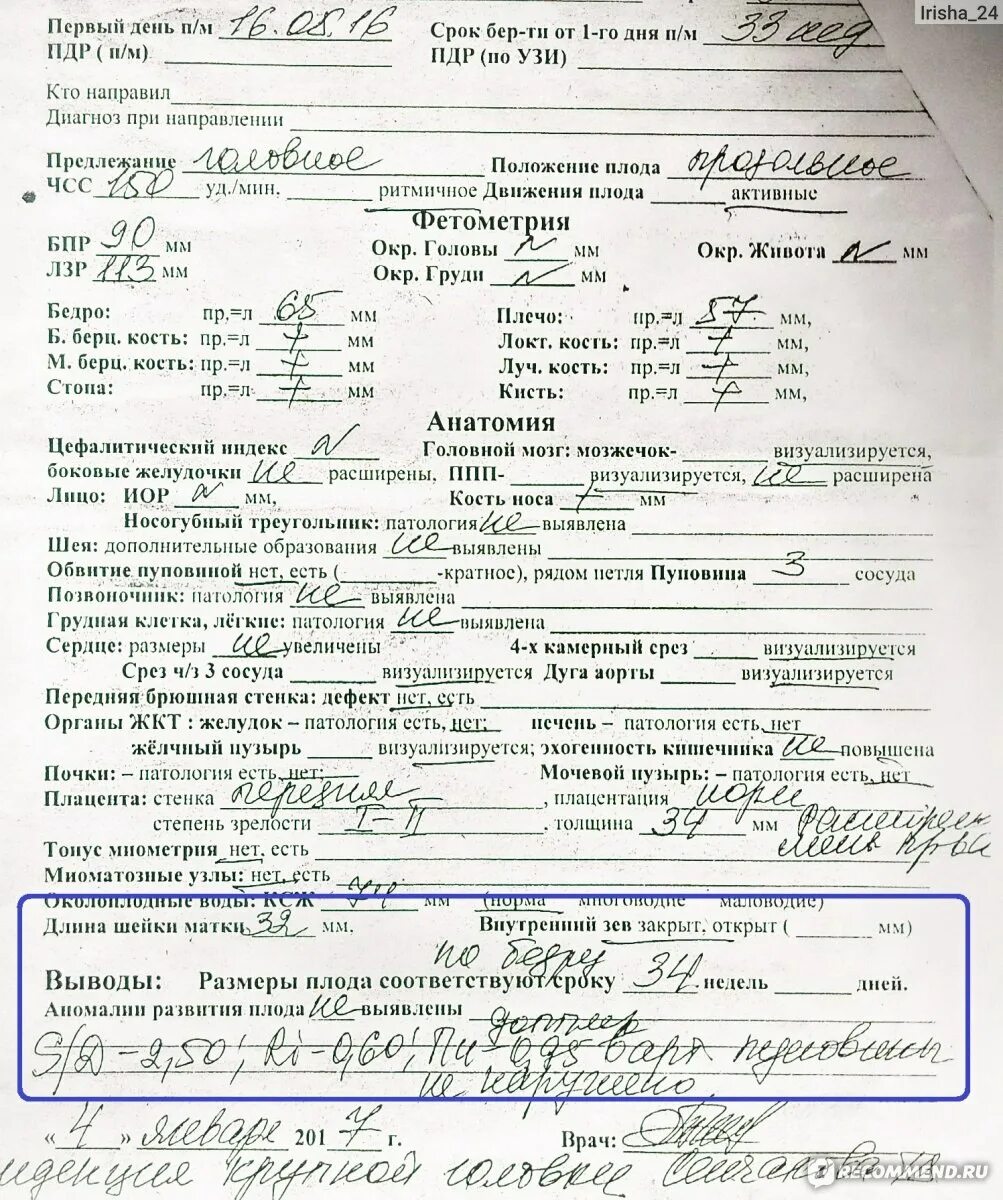 Irisha_24
Первый день п/м 16.05.16 Срок бер-ти от 1-го дня п/м 33 нед
ПДР ( п/м) ПДР (по УЗИ)
Кто направил
Диагноз при направлении
Предлежание головное Положение плода продольное
ЧСС 150 уд./мин. ритмичное Движения плода активные
Фетометрия
БПР 90 мм Окр. Головы N мм Окр. Живота N мм
ЛЗР 113 мм Окр. Груди N мм
Бедро: пр.=л 65 мм Плечо: пр.=л 57 мм,
Б. берц. кость: пр.=л + мм Локт. кость: пр.=л + мм,
М. берц. кость: пр.=л + мм Луч. кость: пр.=л + мм,
Стопа: пр.=л + мм Кисть: пр.=л + мм,
Анатомия
Цефалитический индекс N Головной мозг: мозжечок- визуализируется,
боковые желудочки не расширены, ППП- визуализируется, не расширена
Лицо: ИОР N мм, Кость носа + мм
Носогубный треугольник: патология не выявлена
Шея: дополнительные образования не выявлены
Обвитие пуповиной нет, есть ( -кратное), рядом петля Пуповина 3 сосуда
Позвоночник: патология не выявлена
Грудная клетка, лёгкие: патология не выявлена
Сердце: размеры не увеличены 4-х камерный срез визуализируется
Срез ч/з 3 сосуда визуализируется Дуга аорты визуализируется
Передняя брюшная стенка: дефект нет, есть
Органы ЖКТ : желудок – патология есть, нет; печень – патология есть, нет
жёлчный пузырь визуализируется; эхогенность кишечника не повышена
Почки: – патология есть, нет; Мочевой пузырь: – патология есть, нет
Плацента: стенка передняя , плацентация норм
степень зрелости I-II , толщина 34 мм
Тонус миометрия нет, есть
Миоматозные узлы: нет, есть
Околоплодные воды: КСЖ мм (норма многоводие маловодие)
Длина шейки матки 32 мм, Внутренний зев закрыт, открыт ( мм)
по бедру
Выводы: Размеры плода соответствуют сроку 34 недель дней.
Аномалии развития плода не выявлены
допплер
S/D – 2,50; Ri – 0,60; Пи – 0,95 в арт. пуповины
не нарушено
« 4 » января 2017 г. Врач:
крупной головки
RECOMMEND.RU